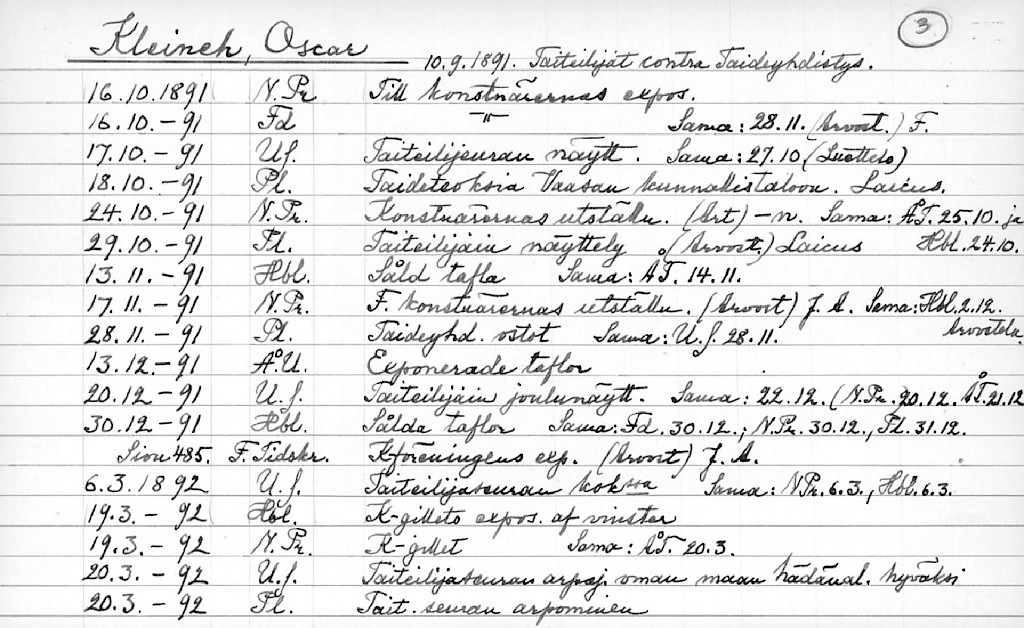 3
Kleineh, Oscar
10.9.1891. Taiteilijat contra Taideyhdistys.
16.10.1891 N.Pr Till konstnärernas expos.
16.10.-91 Fd -"- Sama: 28.11. (Arvost.) F.
17.10.-91 U.S. Taiteilijseuran näytt. Sama: 27.10 (Luettelo)
18.10.-91 Pl. Taideteoksia Vaasan kunnallistaloon. Laicus.
24.10.-91 N.Pr. Konstnärernas utställn. (Art) -n. Sama: ÅT. 25.10. ja
29.10.-91 Pl. Taiteilijain näyttely (Arvost.) Laicus Hbl. 24.10.
13.11.-91 Hbl. Såld tafla Sama: ÅT. 14.11.
17.11.-91 N.Pr. F. konstnärernas utställn. (Arvost) J. A. Sama: Hbl. 2.12.
28.11.-91 Pl. Taideyhd. ostot Sama: U.S. 28.11. Arvostelu
13.12-91 Å.U. Exponerade taflor
20.12-91 U.S. Taiteilijain joulunäytt. Sama: 22.12. (N.Pr. 20.12. ÅT. 21.12
30.12-91 Hbl. Sålda taflor Sama: Fd. 30.12.; N.Pr. 30.12., Pl. 31.12.
Sivu 485. F. Tidskr. Kföreningens exp. (Arvost) J. A.
6.3.1892 U.S. Taiteilijaseuran kokssa Sama: N.Pr. 6.3., Hbl. 6.3.
19.3.-92 Hbl. K-gillets expos. af vinster
19.3.-92 N.Pr. K-gillet Sama: ÅT. 20.3.
20.3.-92 U.S. Taiteilijaseuran arpaj. oman maan hädänal. hyväksi
20.3.-92 Pl. Tait. seuran arpominen